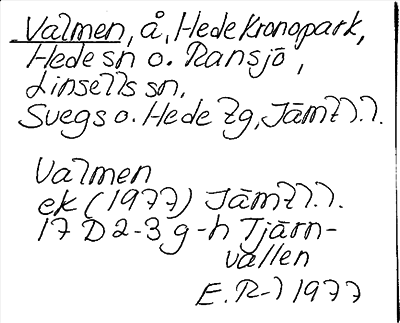 Valmen, å, Hede Kronopark,
Hede sn o. Ransjö,
Linsells sn,
Svegs o. Hede tg, Jämtl.l.
Valmen
ek (1977) Jämtl.l.
17 D 2-3 g-h Tjärn-
vallen
E. R-l 1977